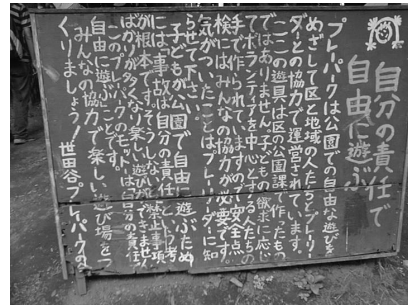 自分の責任で
自由に遊ぶ
プレーパークは公園での自由な遊びを
めざして区と地域の人たちとプレーリー
ダーとの協力で運営されています。
ここの遊具は区の公園課で作ったもの
ではありません。子どもの欲求に応じ
てボランティアをはじめとする人たちの
手で作られていますので安全点
検にはみんなの協力が必要です。
気がついたことはプレーリーダーに知
らせて下さい。
子どもが公園で自由に遊ぶため
には"事故は自分の責任"という考え
が根本です。そうしないと禁止事項
ばかりが多くなり楽しい遊びができません
このプレーパークのモットーは"自分の責任で
自由に遊ぶ"ことです。
みんなの協力で楽しい遊び場をつ
くりましょう！世田谷プレーパークの